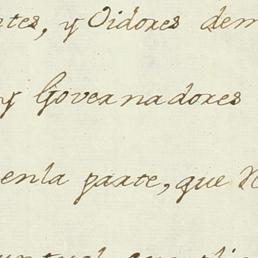 tes, y Oidores dem
y Governadores
enla parte, que N